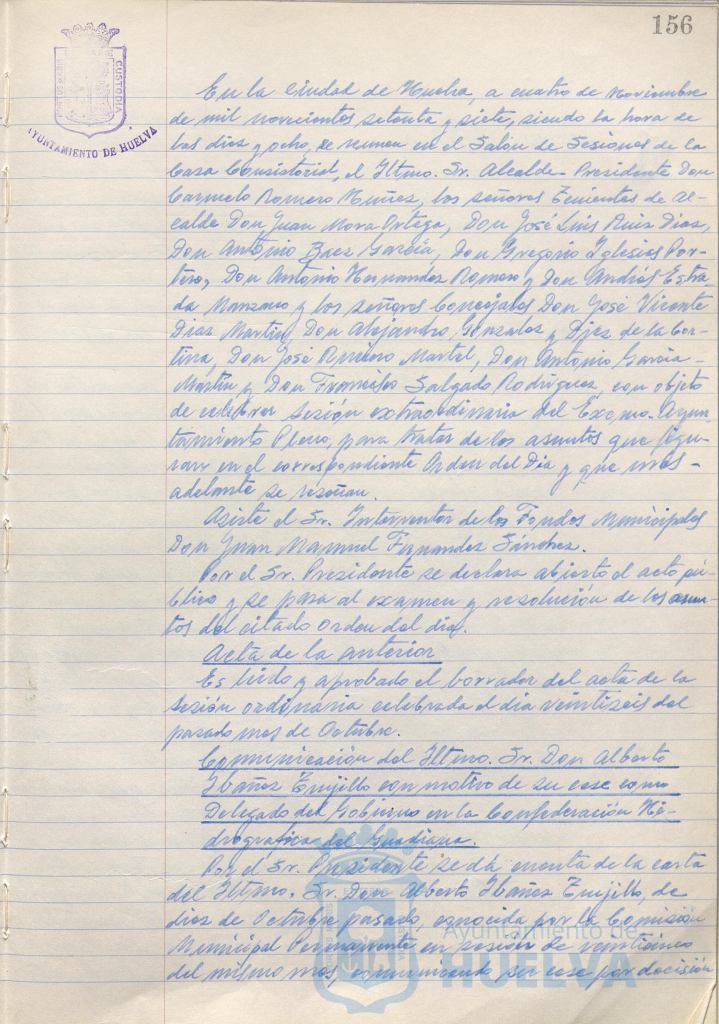 156
CUSTODIA
AYUNTAMIENTO DE HUELVA
En la Ciudad de Huelva, a cuatro de noviembre
de mil novecientos setenta y siete, siendo la hora de
las diez y ocho, se reunen en el Salón de Sesiones de la
Casa Consistorial, el Iltmo. Sr. Alcalde-Presidente Don
Carmelo Romero Núñez, los señores Tenientes de Al-
calde Don Juan Mora Ortega, Don José Luis Ruiz Díaz,
Don Antonio Baez García, Don Gregorio Iglesias Por-
tero, Don Antonio Hernandez Romero y Don Andrés Estra-
da Manzano y los señores Concejales Don José Vicente
Diaz Martín, Don Alejandro Gonzalez y Diez de la Cor-
tina, Don José Romero Martel, Don Antonio García
Martín y Don Francisco Salgado Rodríguez, con objeto
de celebrar sesión extraordinaria del Excmo. Ayun-
tamiento Pleno, para tratar de los asuntos que figu-
ran en el correspondiente Orden del Día y que más
adelante se reseñan.
Asiste el Sr. Interventor de los Fondos Municipales
Don Juan Manuel Fernandez Sánchez.
Por el Sr. Presidente se declara abierto el acto pú-
blico y se pasa al examen y resolución de los asun-
tos del citado Orden del día.
Acta de la anterior
Es leído y aprobado el borrador del acta de la
sesión ordinaria celebrada el día veintiseis del
pasado mes de Octubre.
Comunicación del Iltmo. Sr. Don Alberto
Ibañez Trujillo con motivo de su cese como
Delegado del Gobierno en la Confederación Hi-
drográfica del Guadiana.
Por el Sr. Presidente se dá cuenta de la carta
del Iltmo. Sr. Don Alberto Ibañez Trujillo, de
diez de Octubre pasado, conocida por la Comisión
Municipal Permanente en sesión de veinticinco
del mismo mes, comunicando su cese por decisión
Ayuntamiento de
HUELVA